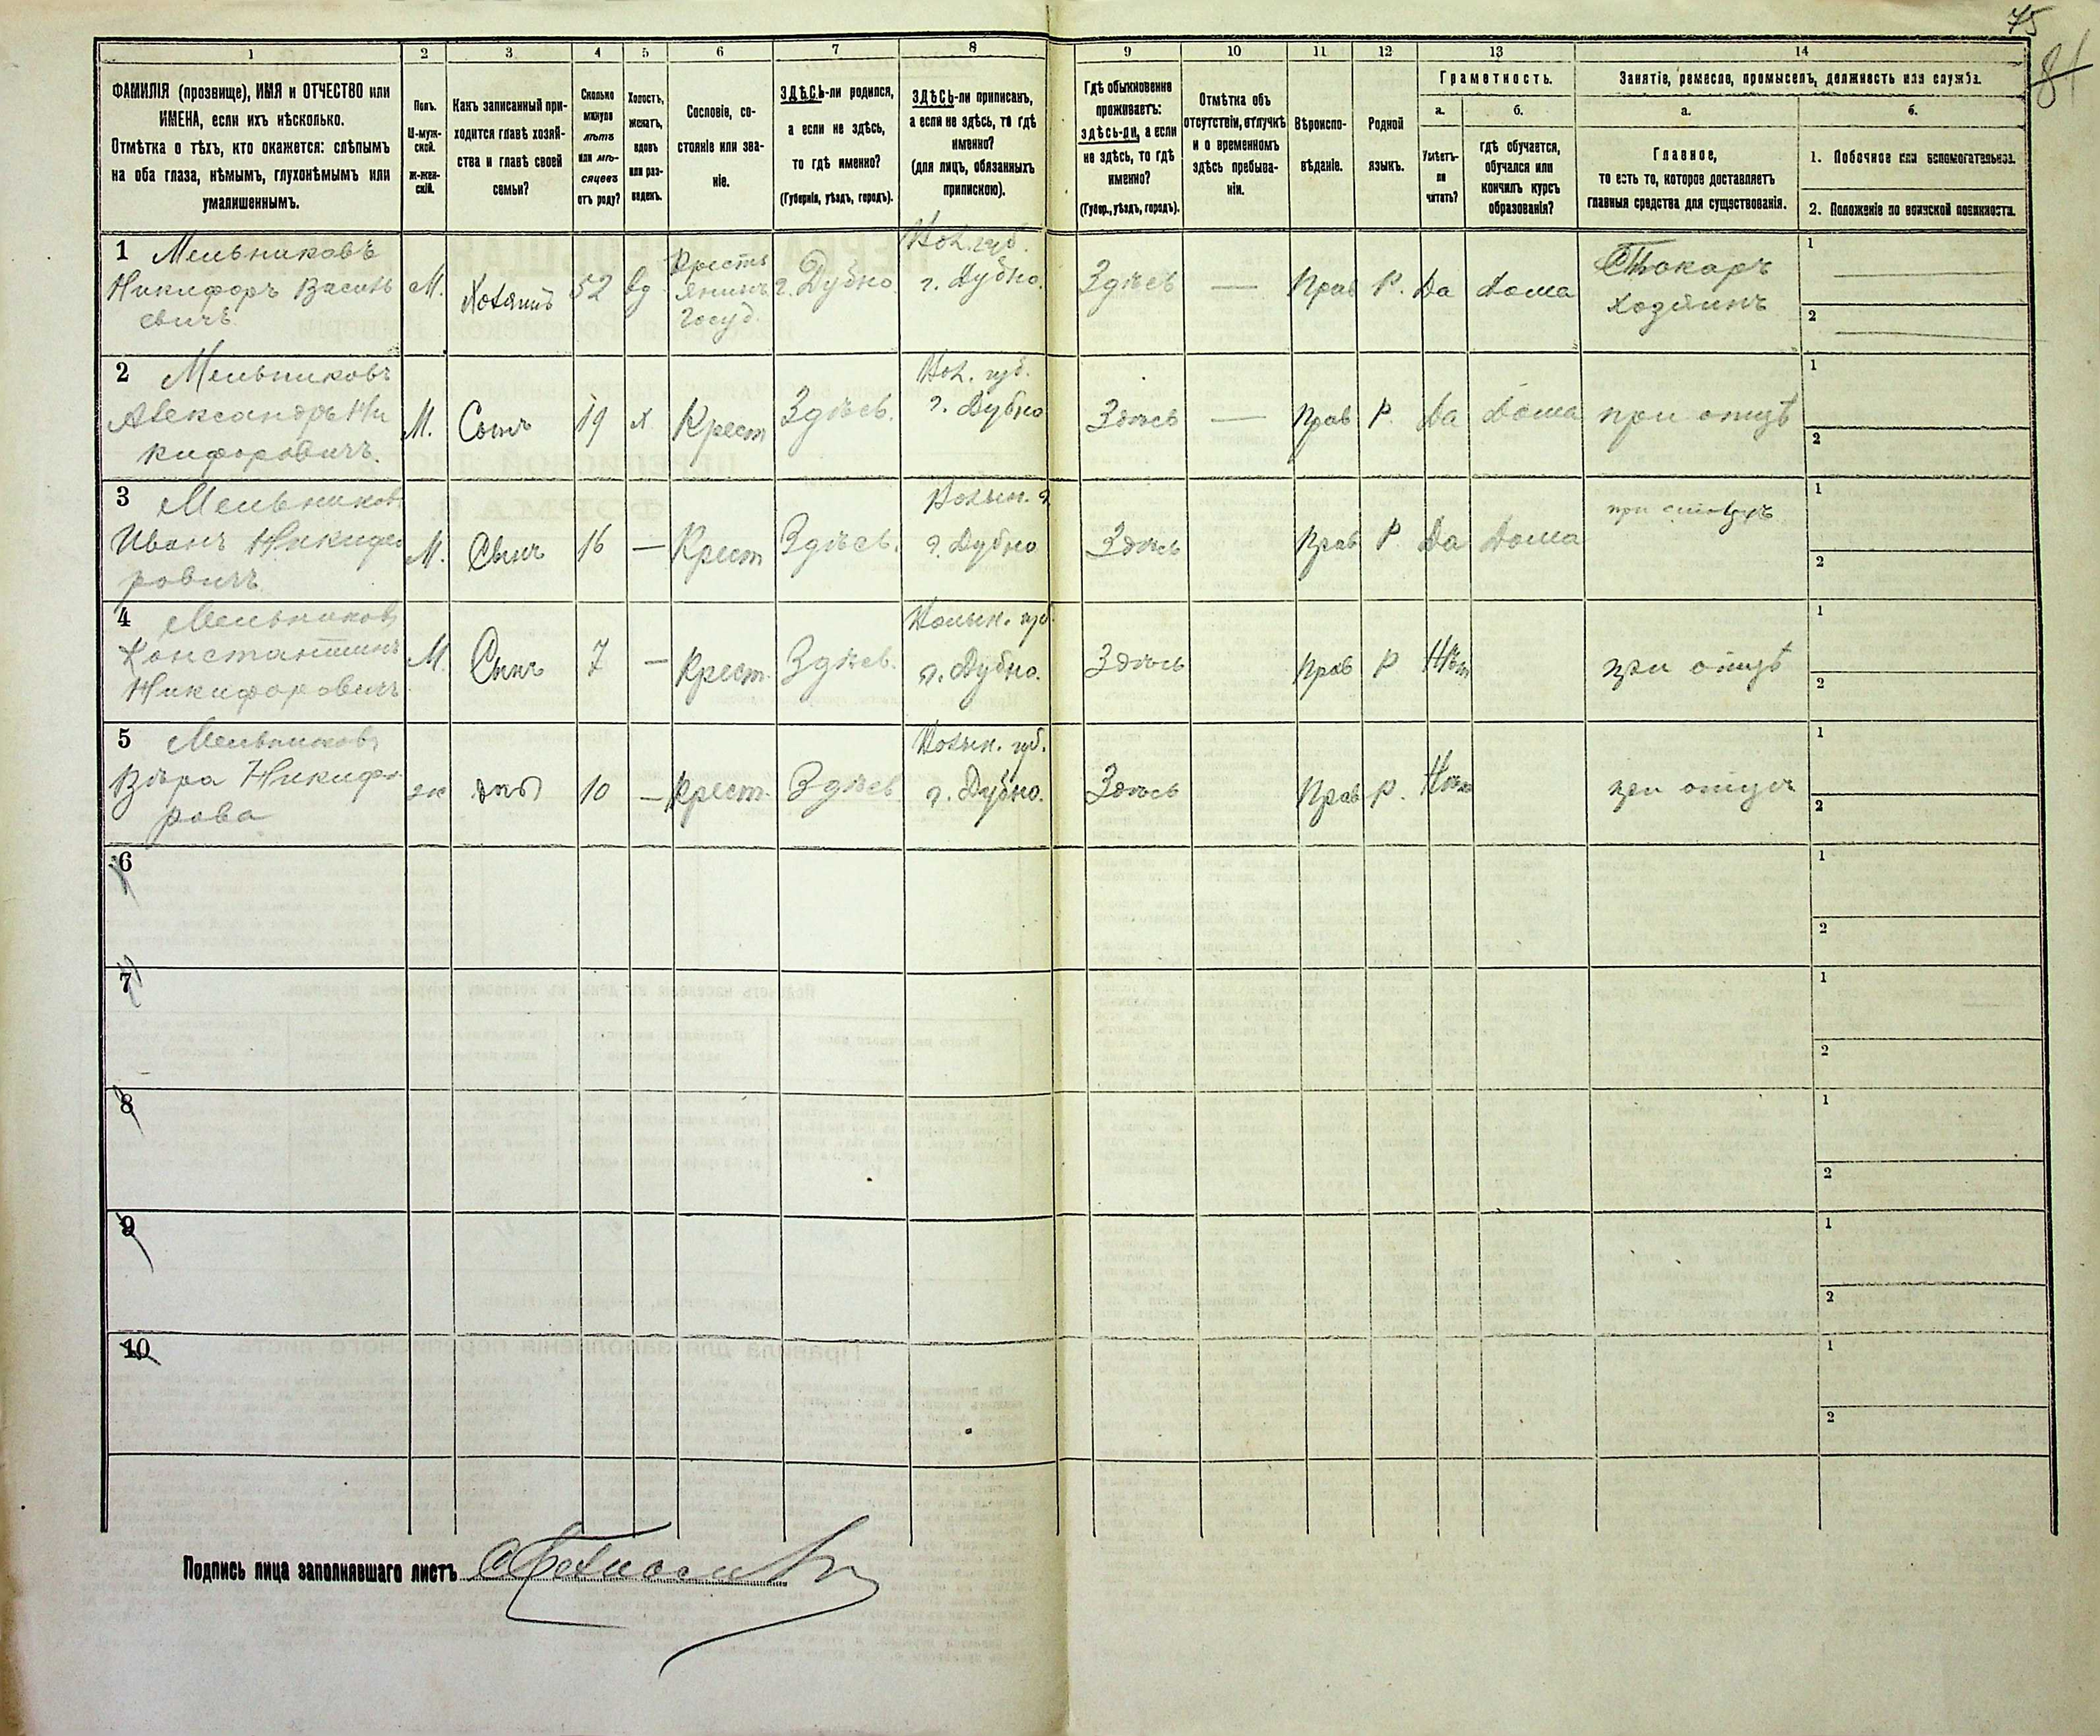 75
81
1
2
3
4
5
6
7
8
9
10
11
12
13
14
ФАМИЛІЯ (прозвище), ИМЯ и ОТЧЕСТВО или
ИМЕНА, если ихъ нѣсколько.
Отмѣтка о тѣхъ, кто окажется: слѣпымъ
на оба глаза, нѣмымъ, глухонѣмымъ или
умалишеннымъ.
Полъ.
М-муж-
ской.
Ж-жен-
скій.
Какъ записанный при-
ходится главѣ хозяй-
ства и главѣ своей
семьи?
Сколько
минуло
лѣтъ
или мѣ-
сяцевъ
отъ роду?
Холостъ,
женатъ,
вдовъ
или раз-
веденъ.
Сословіе, со-
стояніе или зва-
ніе.
ЗДѢСЬ-ли родился,
а если не здѣсь,
то гдѣ именно?
(Губернія, уѣздъ, городъ).
ЗДѢСЬ-ли приписанъ,
а если не здѣсь, то гдѣ
именно?
(для лицъ, обязанныхъ
припискою).
Гдѣ обыкновенно
проживаетъ:
здѣсь-ли, а если
не здѣсь, то гдѣ
именно?
(Губер., уѣздъ, городъ).
Отмѣтка объ
отсутствіи, отлучкѣ
и о временномъ
здѣсь пребыва-
ніи.
Вѣроиспо-
вѣданіе.
Родной
языкъ.
Грамотность.
а.
Умѣетъ-
ли
читать?
б.
гдѣ обучается,
обучался или
кончилъ курсъ
образованія?
Занятіе, ремесло, промыселъ, должность или служба.
а.
Главное,
то есть то, которое доставляетъ
главныя средства для существованія.
б.
1. Побочное или вспомогательное.
2. Положеніе по воинской повинности.
1 Мельниковъ
Никифоръ Василь
евичъ
М.
Хозяинъ
52
вд
Кресть
янинъ
госуд.
г. Дубно
Вол. губ.
г. Дубно.
Здѣсь
—
Прав
Р.
Да
дома
Токарь
хозяинъ
1
2
2 Мельниковъ
Александръ Ни
кифоровичъ.
М.
Сынъ
19
х
Крест
Здѣсь.
Вол. губ.
г. Дубно
Здѣсь
—
Прав
Р.
Да
дома
при отцѣ
1
2
3 Мельников
Иванъ Никифо
ровичъ
М.
Сынъ
16
—
Крест
Здѣсь.
Волын. г
г. Дубно
Здѣсь
Прав
Р
Да
Дома
1
2
4 Мельников
Константинъ
Никифоровичъ
М.
Сынъ
7
—
Крест.
Здѣсь.
Волын. губ.
г. Дубно.
Здѣсь
Прав
Р
Нѣт
при отцѣ
1
2
5 Мельников
Вѣра Никифо
рова
ж
10
—
Крест.
Здѣсь
Волын. губ.
г. Дубно.
Здѣсь
Прав
Р.
Нѣт
при отцѣ
1
2
6
1
2
7
1
2
8
1
2
9
1
2
10
1
2
Подпись лица заполнявшаго листъ